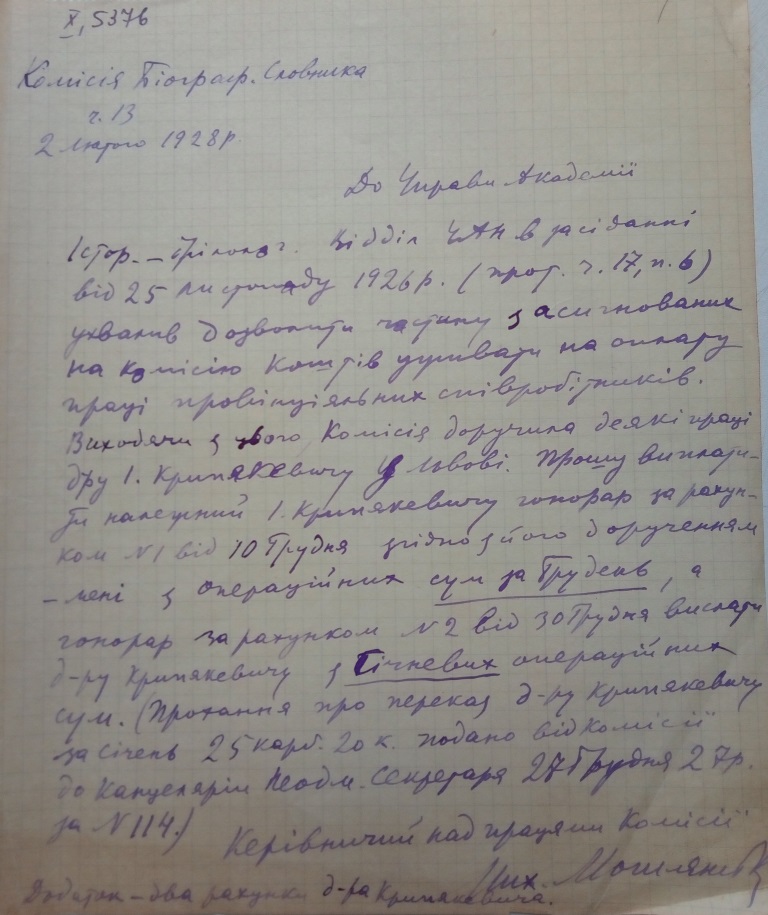 X, 5376
Комісія Біограф. Словника
ч. 13
2 лютого 1928 р.
До Управи Академії
Істор.-Філолог. Відділ УАН в засіданні
від 25 листопаду 1926 р. (прот. ч. 17, п. 6)
ухвалив дозволити частину з асигнованих
на комісію коштів уживати на оплату
праці провінціяльних співробітників.
Виходячи з цього, Комісія доручила деякі праці
д-ру І. Крипякевичу у Львові. Прошу виплати-
ти належний І. Крипякевичу гонорар за рахун-
ком №1 від 10 Грудня згідно з його дорученням
- мені з операційних сум за Грудень, а
гонорар за рахунком №2 від 30 Грудня вислати
д-ру Крипякевичу з Січневих операційних
сум. (Прохання про переказ д-ру Крипякевичу
за січень 25 карб. 20 к. подано від Комісії
до Канцелярії Неодм. Секретаря 27 Грудня 27 р.
за №114.)
Керівничий над працями Комісії
Мих. Могилянськ
Додаток – два рахунки д-ра Крипякевича.